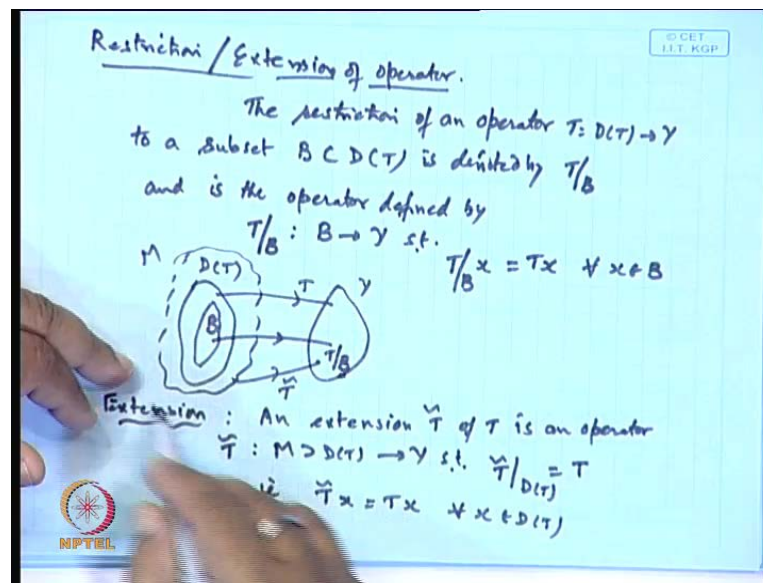 © CET
I.I.T. KGP
Restriction / Extension of operator.
The restriction of an operator T: D(T) → Y
to a subset B ⊂ D(T) is denoted by T/B
and is the operator defined by
T/B : B → Y s.t.
T/B x = Tx ∀ x ∈ B
M D(T) T Y
B T/B
T̃
Extension : An extension T̃ of T is an operator
T̃ : M ⊃ D(T) → Y s.t. T̃/D(T) = T
ie T̃x = Tx ∀ x ∈ D(T)
NPTEL